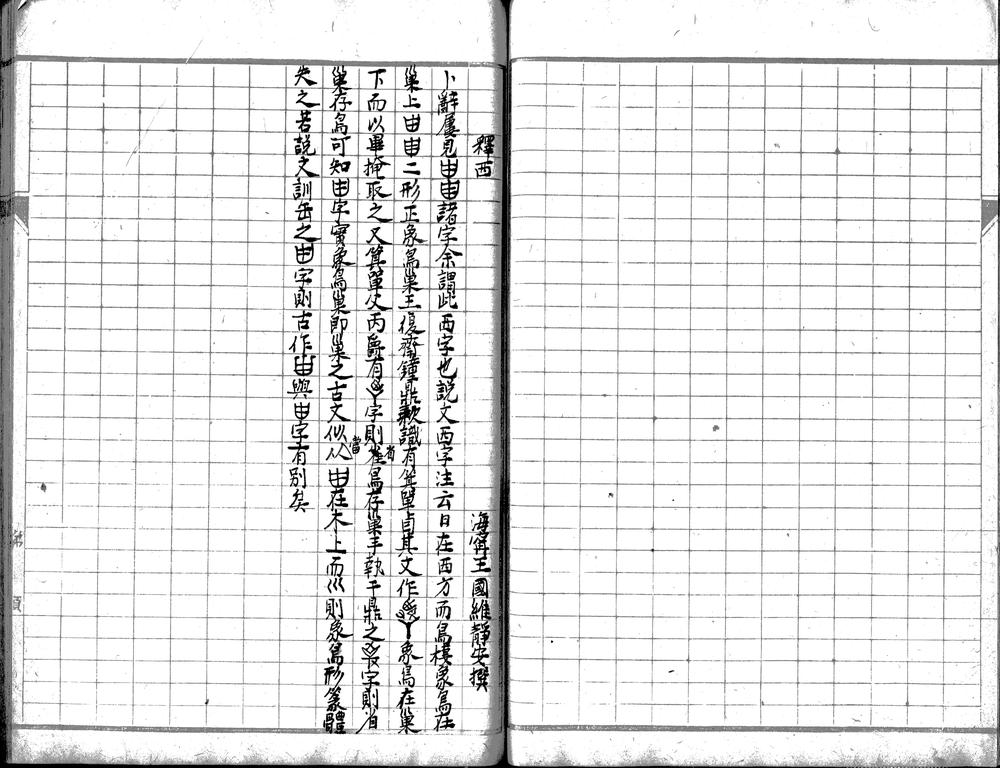 釋西
海甯王國維靜安撰
卜辭屢見甶由諸字余謂此西字也說文西字注云日在西方而鳥棲象鳥在
巢上甶由二形正象鳥巢王復齋鐘鼎款識有箕單卣其文作象鳥在巢
下而以畢掩取之又箕單父丙爵有字則省鳥存巢手執干鼎之字則省
巢存鳥可知甶字實象鳥巢即巢之古文似当从甶在木上而巛則象鳥形篆體
失之若說文訓缶之甶字則古作由與甶字有別矣
弟
頁